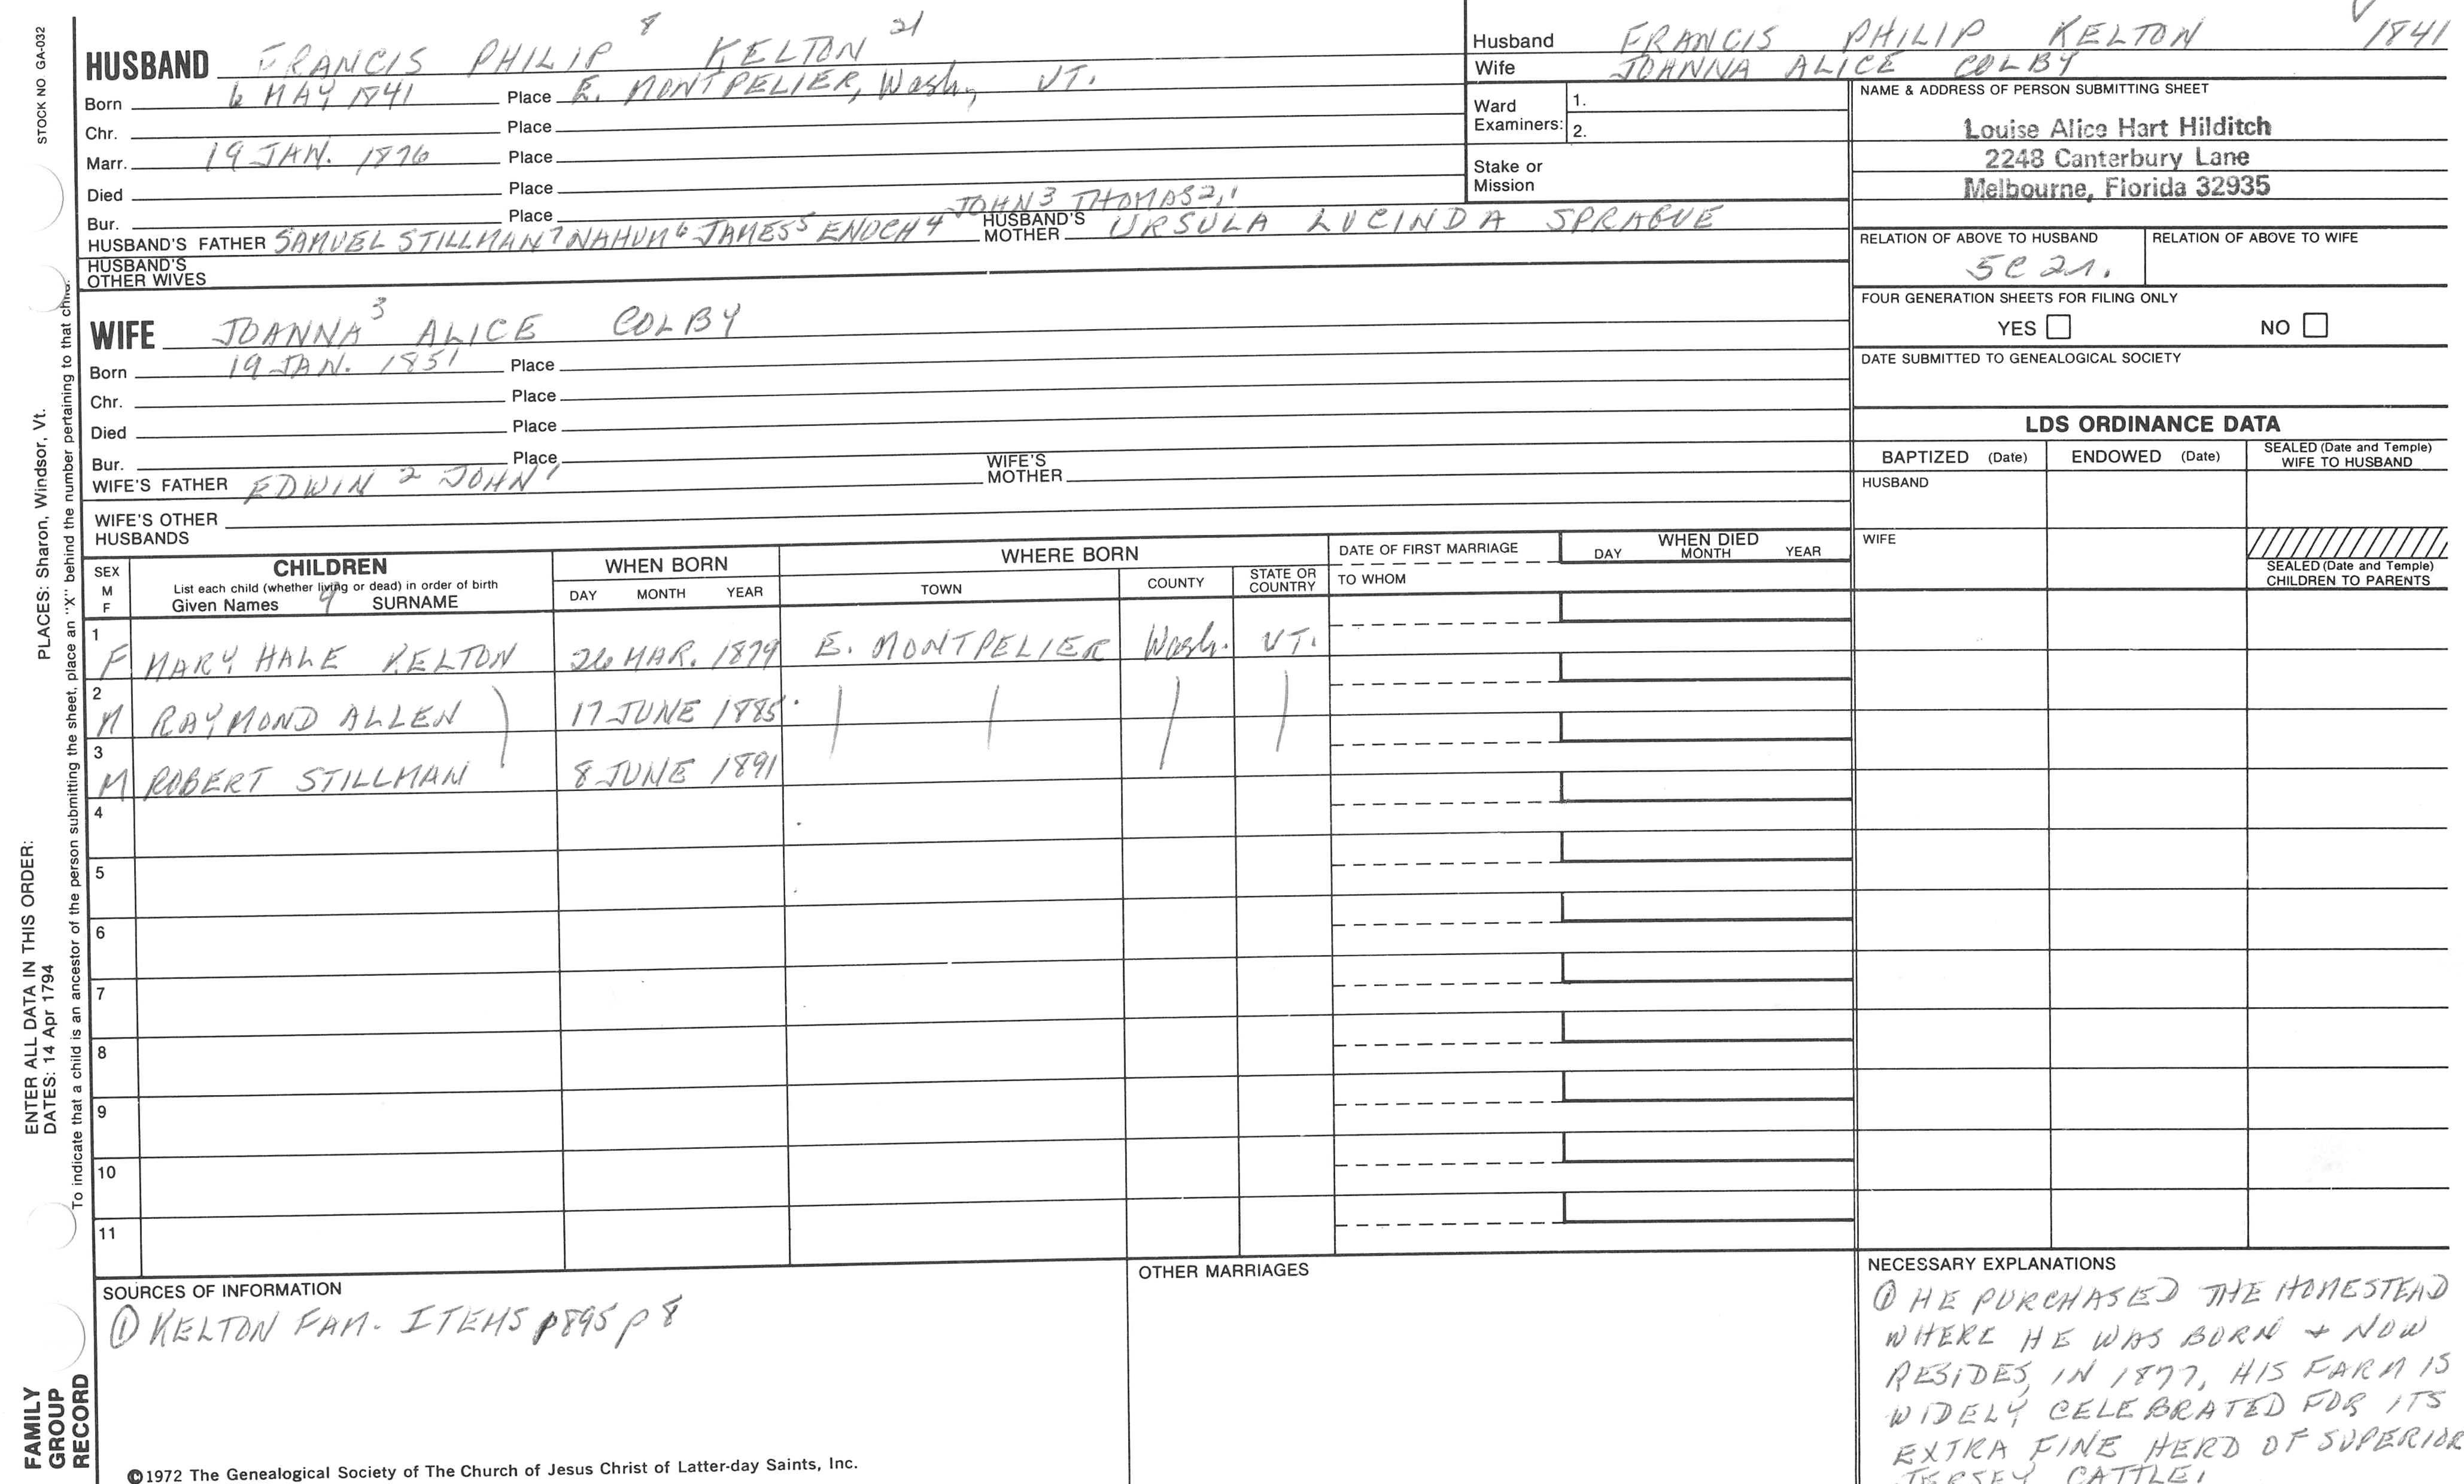 STOCK NO GA-032
HUSBAND FRANCIS PHILIP 8 KELTON 21
Born 6 MAY 1841 Place E. MONTPELIER, Wash, VT.
Chr. Place
Marr. 19 JAN. 1876 Place
Died Place
Bur. Place
JOHN 3 THOMAS 2,1
HUSBAND'S FATHER SAMUEL STILLMAN 7 NAHUM 6 JAMES 5 ENOCH 4 HUSBAND'S MOTHER URSULA LUCINDA SPRAGUE
HUSBAND'S
OTHER WIVES
WIFE JOANNA 3 ALICE COLBY
Born 19 JAN. 1851 Place
Chr. Place
Died Place
Bur. Place
WIFE'S FATHER EDWIN 2 JOHN 1 WIFE'S MOTHER
WIFE'S OTHER
HUSBANDS
Husband FRANCIS PHILIP KELTON 1841
Wife JOANNA ALICE COLBY
Ward
Examiners: 1.
2.
Stake or
Mission
NAME & ADDRESS OF PERSON SUBMITTING SHEET
Louise Alice Hart Hilditch
2248 Canterbury Lane
Melbourne, Florida 32935
RELATION OF ABOVE TO HUSBAND RELATION OF ABOVE TO WIFE
5C 2r.
FOUR GENERATION SHEETS FOR FILING ONLY
YES NO
DATE SUBMITTED TO GENEALOGICAL SOCIETY
LDS ORDINANCE DATA
BAPTIZED (Date) ENDOWED (Date) SEALED (Date and Temple)
WIFE TO HUSBAND
HUSBAND
WIFE
SEALED (Date and Temple)
CHILDREN TO PARENTS
SEX
M
F
CHILDREN
List each child (whether living or dead) in order of birth
Given Names SURNAME
WHEN BORN
DAY MONTH YEAR
WHERE BORN
TOWN COUNTY STATE OR COUNTRY
DATE OF FIRST MARRIAGE
TO WHOM
WHEN DIED
DAY MONTH YEAR
1 F MARY HALE KELTON 26 MAR. 1879 E. MONTPELIER Wash. VT.
2 M RAYMOND ALLEN 17 JUNE 1885
3 M ROBERT STILLMAN 8 JUNE 1891
4
5
6
7
8
9
10
11
SOURCES OF INFORMATION
① KELTON FAM. ITEMS p895 p 8
OTHER MARRIAGES
NECESSARY EXPLANATIONS
① HE PURCHASED THE HOMESTEAD
WHERE HE WAS BORN + NOW
RESIDES, IN 1877, HIS FARM IS
WIDELY CELEBRATED FOR ITS
EXTRA FINE HERD OF SUPERIOR
JERSEY CATTLE.
©1972 The Genealogical Society of The Church of Jesus Christ of Latter-day Saints, Inc.
FAMILY
GROUP
RECORD
ENTER ALL DATA IN THIS ORDER:
DATES: 14 Apr 1794
PLACES: Sharon, Windsor, Vt.
To indicate that a child is an ancestor of the person submitting the sheet, place an "X" behind the number pertaining to that child.